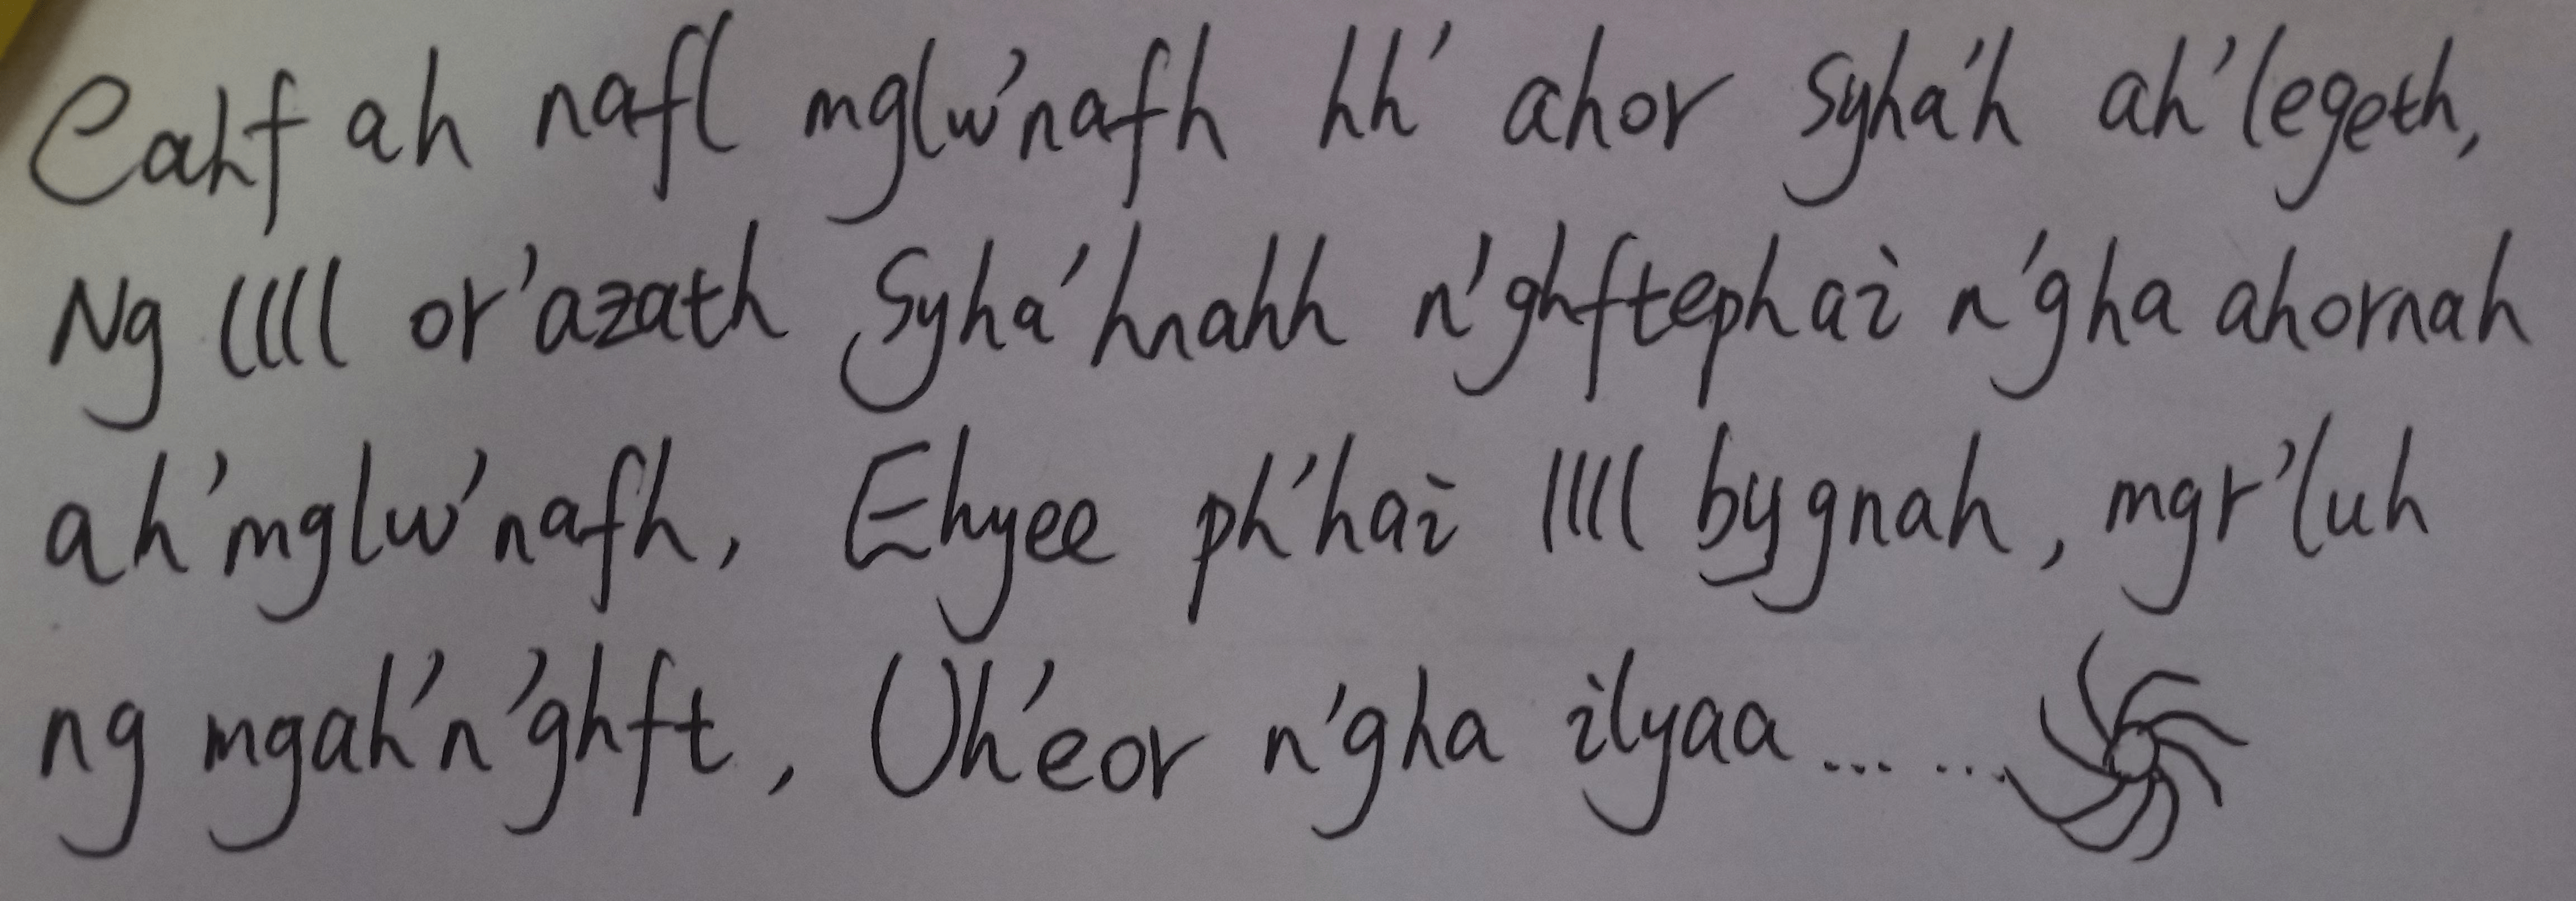 Cahf ah nafl mglw'nafh hh' ahor syha'h ah'legeth,
Ng llll or'azath syha'hnahh n'ghftephai n'gha ahornah
ah'mglw'nafh, Ehyee ph'hai llll bygnah, mgr'luh
ng mgah'n'ghft, Uh'eor n'gha ilyaa... ...